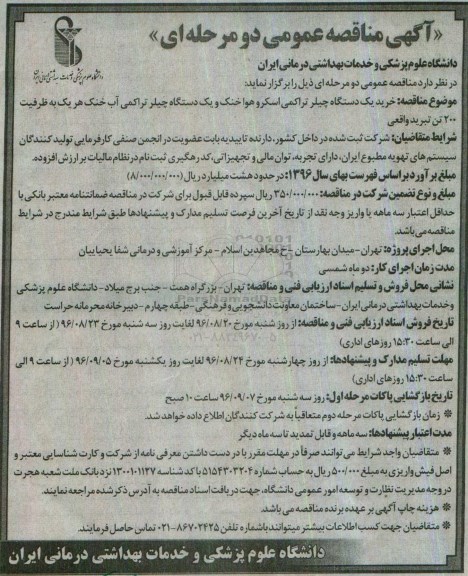 «آگهی مناقصه عمومی دو مرحله ای»
دانشگاه علوم پزشکی و خدمات بهداشتی درمانی ایران
در نظر دارد مناقصه عمومی دو مرحله ای ذیل را برگزار نماید:
موضوع مناقصه: خرید یک دستگاه چیلر تراکمی اسکرو هوا خنک و یک دستگاه چیلر تراکمی آب خنک هر یک به ظرفیت
۲۰۰ تن تبرید واقعی
شرایط متقاضیان: شرکت ثبت شده در داخل کشور، دارنده تاییدیه بابت عضویت در انجمن صنفی کارفرمایی تولید کنندگان
سیستم های تهویه مطبوع ایران، دارای تجربه، توان مالی و تجهیزاتی، کد رهگیری ثبت نام در نظام مالیات بر ارزش افزوده.
مبلغ برآورد بر اساس فهرست بهای سال ۱۳۹۶: در حدود هشت میلیارد ریال (۸/۰۰۰/۰۰۰/۰۰۰)
مبلغ و نوع تضمین شرکت در مناقصه: ۳۵۰/۰۰۰/۰۰۰ ریال سپرده قابل قبول برای شرکت در مناقصه ضمانتنامه معتبر بانکی با
حداقل اعتبار سه ماهه یا واریز وجه نقد از تاریخ آخرین فرصت تسلیم مدارک و پیشنهادها طبق شرایط مندرج در شرایط
مناقصه می باشد.
محل اجرای پروژه: تهران - میدان بهارستان - خ مجاهدین اسلام - مرکز آموزشی و درمانی شفا یحیاییان
مدت زمان اجرای کار: دو ماه شمسی
نشانی محل فروش و تسلیم اسناد ارزیابی فنی و مناقصه: تهران - بزرگراه همت - جنب برج میلاد - دانشگاه علوم پزشکی
و خدمات بهداشتی درمانی ایران - ساختمان معاونت دانشجویی و فرهنگی - طبقه چهارم - دبیرخانه محرمانه حراست
تاریخ فروش اسناد ارزیابی فنی و مناقصه: از روز شنبه مورخ ۹۶/۰۸/۲۰ لغایت روز سه شنبه مورخ ۹۶/۰۸/۲۳ (از ساعت ۹
الی ساعت ۱۵:۳۰ روزهای اداری)
مهلت تسلیم مدارک و پیشنهادها: از روز چهارشنبه مورخ ۹۶/۰۸/۲۴ لغایت روز یکشنبه مورخ ۹۶/۰۹/۰۵ (از ساعت ۹ الی
ساعت ۱۵:۳۰ روزهای اداری)
تاریخ بازگشایی پاکات مرحله اول: روز سه شنبه مورخ ۹۶/۰۹/۰۷ ساعت ۱۰ صبح
* زمان بازگشایی پاکات مرحله دوم متعاقباً به شرکت کنندگان اطلاع داده خواهد شد.
مدت اعتبار پیشنهادها: سه ماهه و قابل تمدید تا سه ماه دیگر
* متقاضیان واجد شرایط می توانند صرفاً در مهلت مقرر با در دست داشتن معرفی نامه از شرکت و کارت شناسایی معتبر و
اصل فیش واریزی به مبلغ ۵۰۰/۰۰۰ ریال به حساب شماره ۵۱۵۴۳۰۳۲۰۴ با کد شناسه ۱۳۰۰۱۰۱۱۲۷ نزد بانک ملت شعبه هجرت
در وجه مدیریت نظارت و توسعه امور عمومی دانشگاه، جهت دریافت اسناد مناقصه به آدرس ذکر شده مراجعه نمایند.
* هزینه چاپ آگهی بر عهده برنده مناقصه می باشد.
* متقاضیان جهت کسب اطلاعات بیشتر میتوانند با شماره تلفن ۸۶۷۰۲۴۲۵-۰۲۱ تماس حاصل فرمایند.
دانشگاه علوم پزشکی و خدمات بهداشتی درمانی ایران